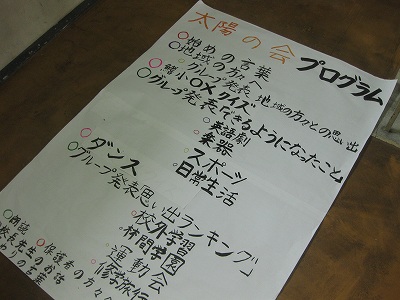 太陽の会 プログラム
○始めの言葉
○地域の方々へ
グループ発表 地域の方々との思い出
○縮小○×クイズ
○グループ発表「できるようになったこと」
・英語劇
・楽器
・スポーツ
・日常生活
○ダンス
○グループ発表「思い出ランキング」
・校外学習
・林間学園
・運動会
・修学旅行
○朗読
○保護者の方々
校長先生のお話
りの言葉